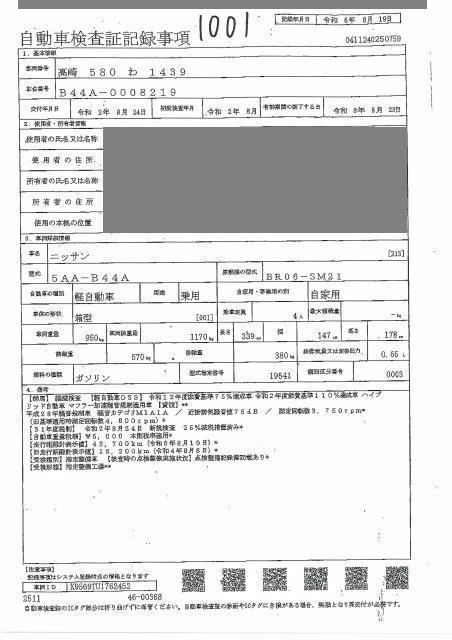 1001
記録年月日 令和 6年 8月19日
自動車検査証記録事項
0411240250759
1. 基本情報
車両番号 高崎 580 わ 1439
車台番号 B44A-0008219
交付年月日 令和 2年 8月24日 初度検査年月 令和 2年 8月 有効期間の満了する日 令和 8年 8月 23日
2. 使用者・所有者情報
使用者の氏名又は名称
使用者の住所
所有者の氏名又は名称
所有者の住所
使用の本拠の位置
3. 車両詳細情報
車名 ニッサン [213]
型式 5AA-B44A 原動機の型式 BR06-SM21
自動車の種別 軽自動車 用途 乗用 自家用・事業用の別 自家用
車体の形状 箱型 [001] 乗車定員 4人 最大積載量 -kg
車両重量 950kg 車両総重量 1170kg 長さ 339cm 幅 147cm 高さ 178cm
前軸重 570kg 後軸重 380kg 総排気量又は定格出力 0.65 L
燃料の種類 ガソリン 型式指定番号 19541 類別区分番号 0003
4. 備考
継続検査 [軽自動車OSS] 令和12年度燃費基準75%達成車 令和2年度燃費基準110%達成車 ハイブ
リッド自動車 マフラー加速騒音規制適用車
平成28年騒音規制車 騒音カテゴリM1A1A / 近接排気騒音値75dB / 測定回転数3,750rpm*
(旧基準適用時測定回転数4,800rpm)*
[31年度税制] 令和2年8月24日 新規検査 25%減税措置済み*
[自動車重量税額] ¥5,000 本則税率適用*
[走行距離計表示値] 43,700km (令和6年8月19日)*
[旧走行距離計表示値] 15,200km (令和4年8月8日)*
[受検種別] 指定整備車 [検査時の点検整備実施状況] 点検整備記録簿記載あり*
[受検形態] 指定整備工場**
[注意事項]
記録事項はシステム登録時点の情報となります
車両ID K9569TU1762452
2511 46-00368
自動車検査証のICタグ部分は折り曲げずに保管ください。自動車検査証の券面やICタグに含損がある場合、無効となり再交付が必要です。